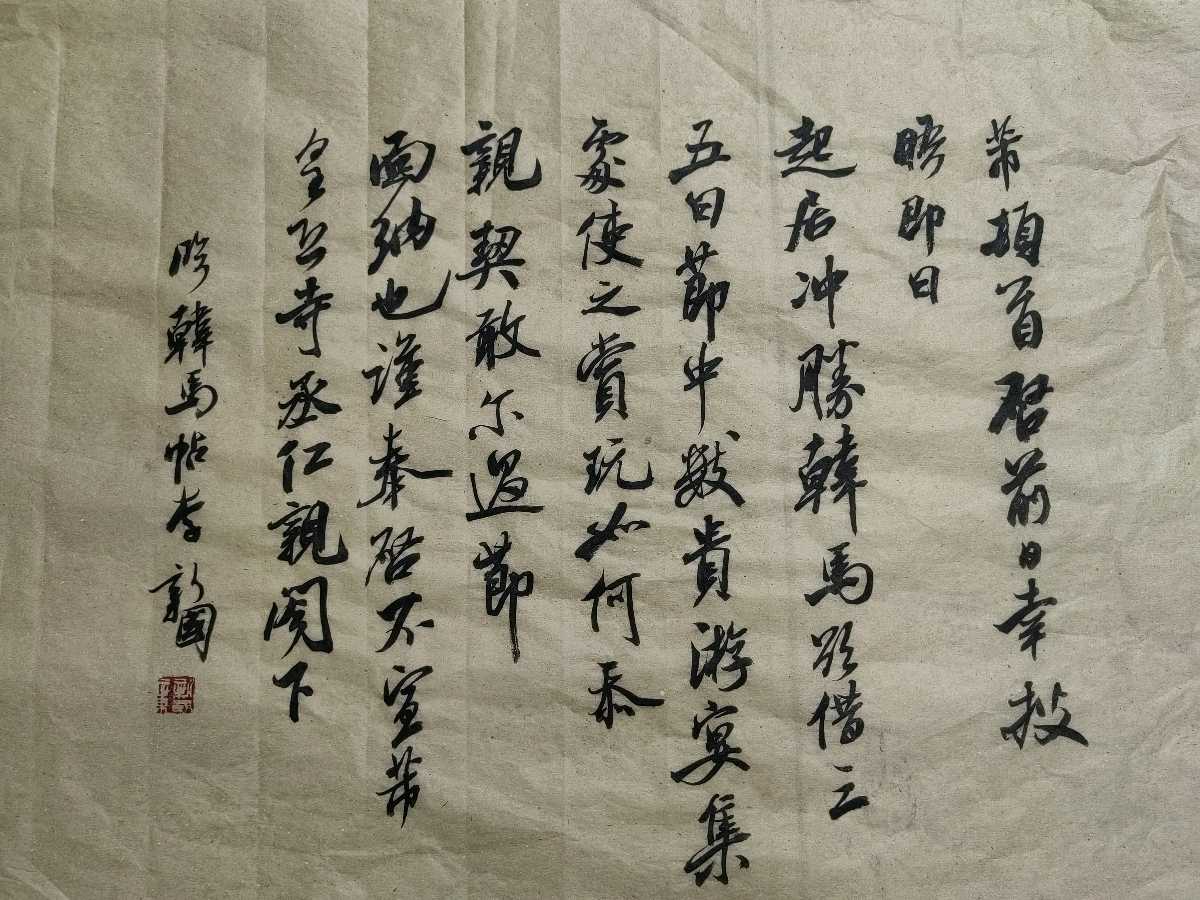 芾頓首啓前日幸披
晤即日
起居冲勝韓馬欲借三
五日節中數貴游宴集
處使之賞玩如何忝
親契敢尔過節
面納也謹奉啓不宣芾
皇恐寺丞仁親閤下
临韓馬帖李新國